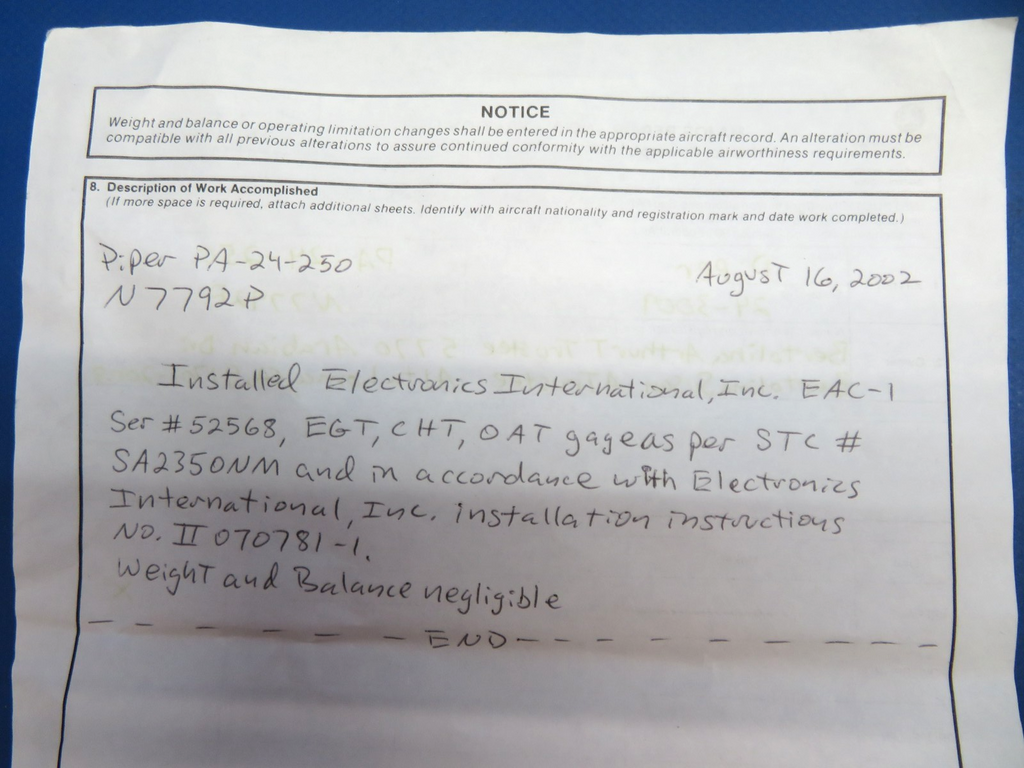 NOTICE
Weight and balance or operating limitation changes shall be entered in the appropriate aircraft record. An alteration must be
compatible with all previous alterations to assure continued conformity with the applicable airworthiness requirements.
8. Description of Work Accomplished
(If more space is required, attach additional sheets. Identify with aircraft nationality and registration mark and date work completed.)
Piper PA-24-250
August 16, 2002
N7792P
Installed Electronics International, Inc. EAC-1
Ser # 52568, EGT, CHT, OAT gage as per STC #
SA2350NM and in accordance with Electronics
International, Inc. installation instructions
No. II 070781-1.
Weight and Balance negligible
— — — — — — END — — — — — — — — —